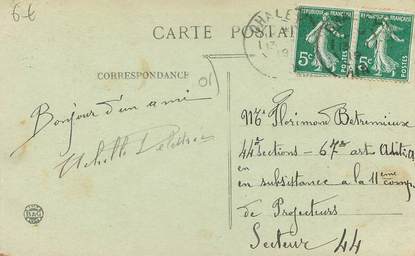 6-6
CARTE POSTA
CORRESPONDANCE
01
REPUBLIQUE FRANÇAISE
5c
POSTES
REPUBLIQUE FRANÇAISE
5c
POSTES
Bonjour d'un ami
Mr Florimond Betremieux
44e sections - 67e art
en
en subsistance a la 11eme comp
de Projecteurs
Secteur 44
B&G